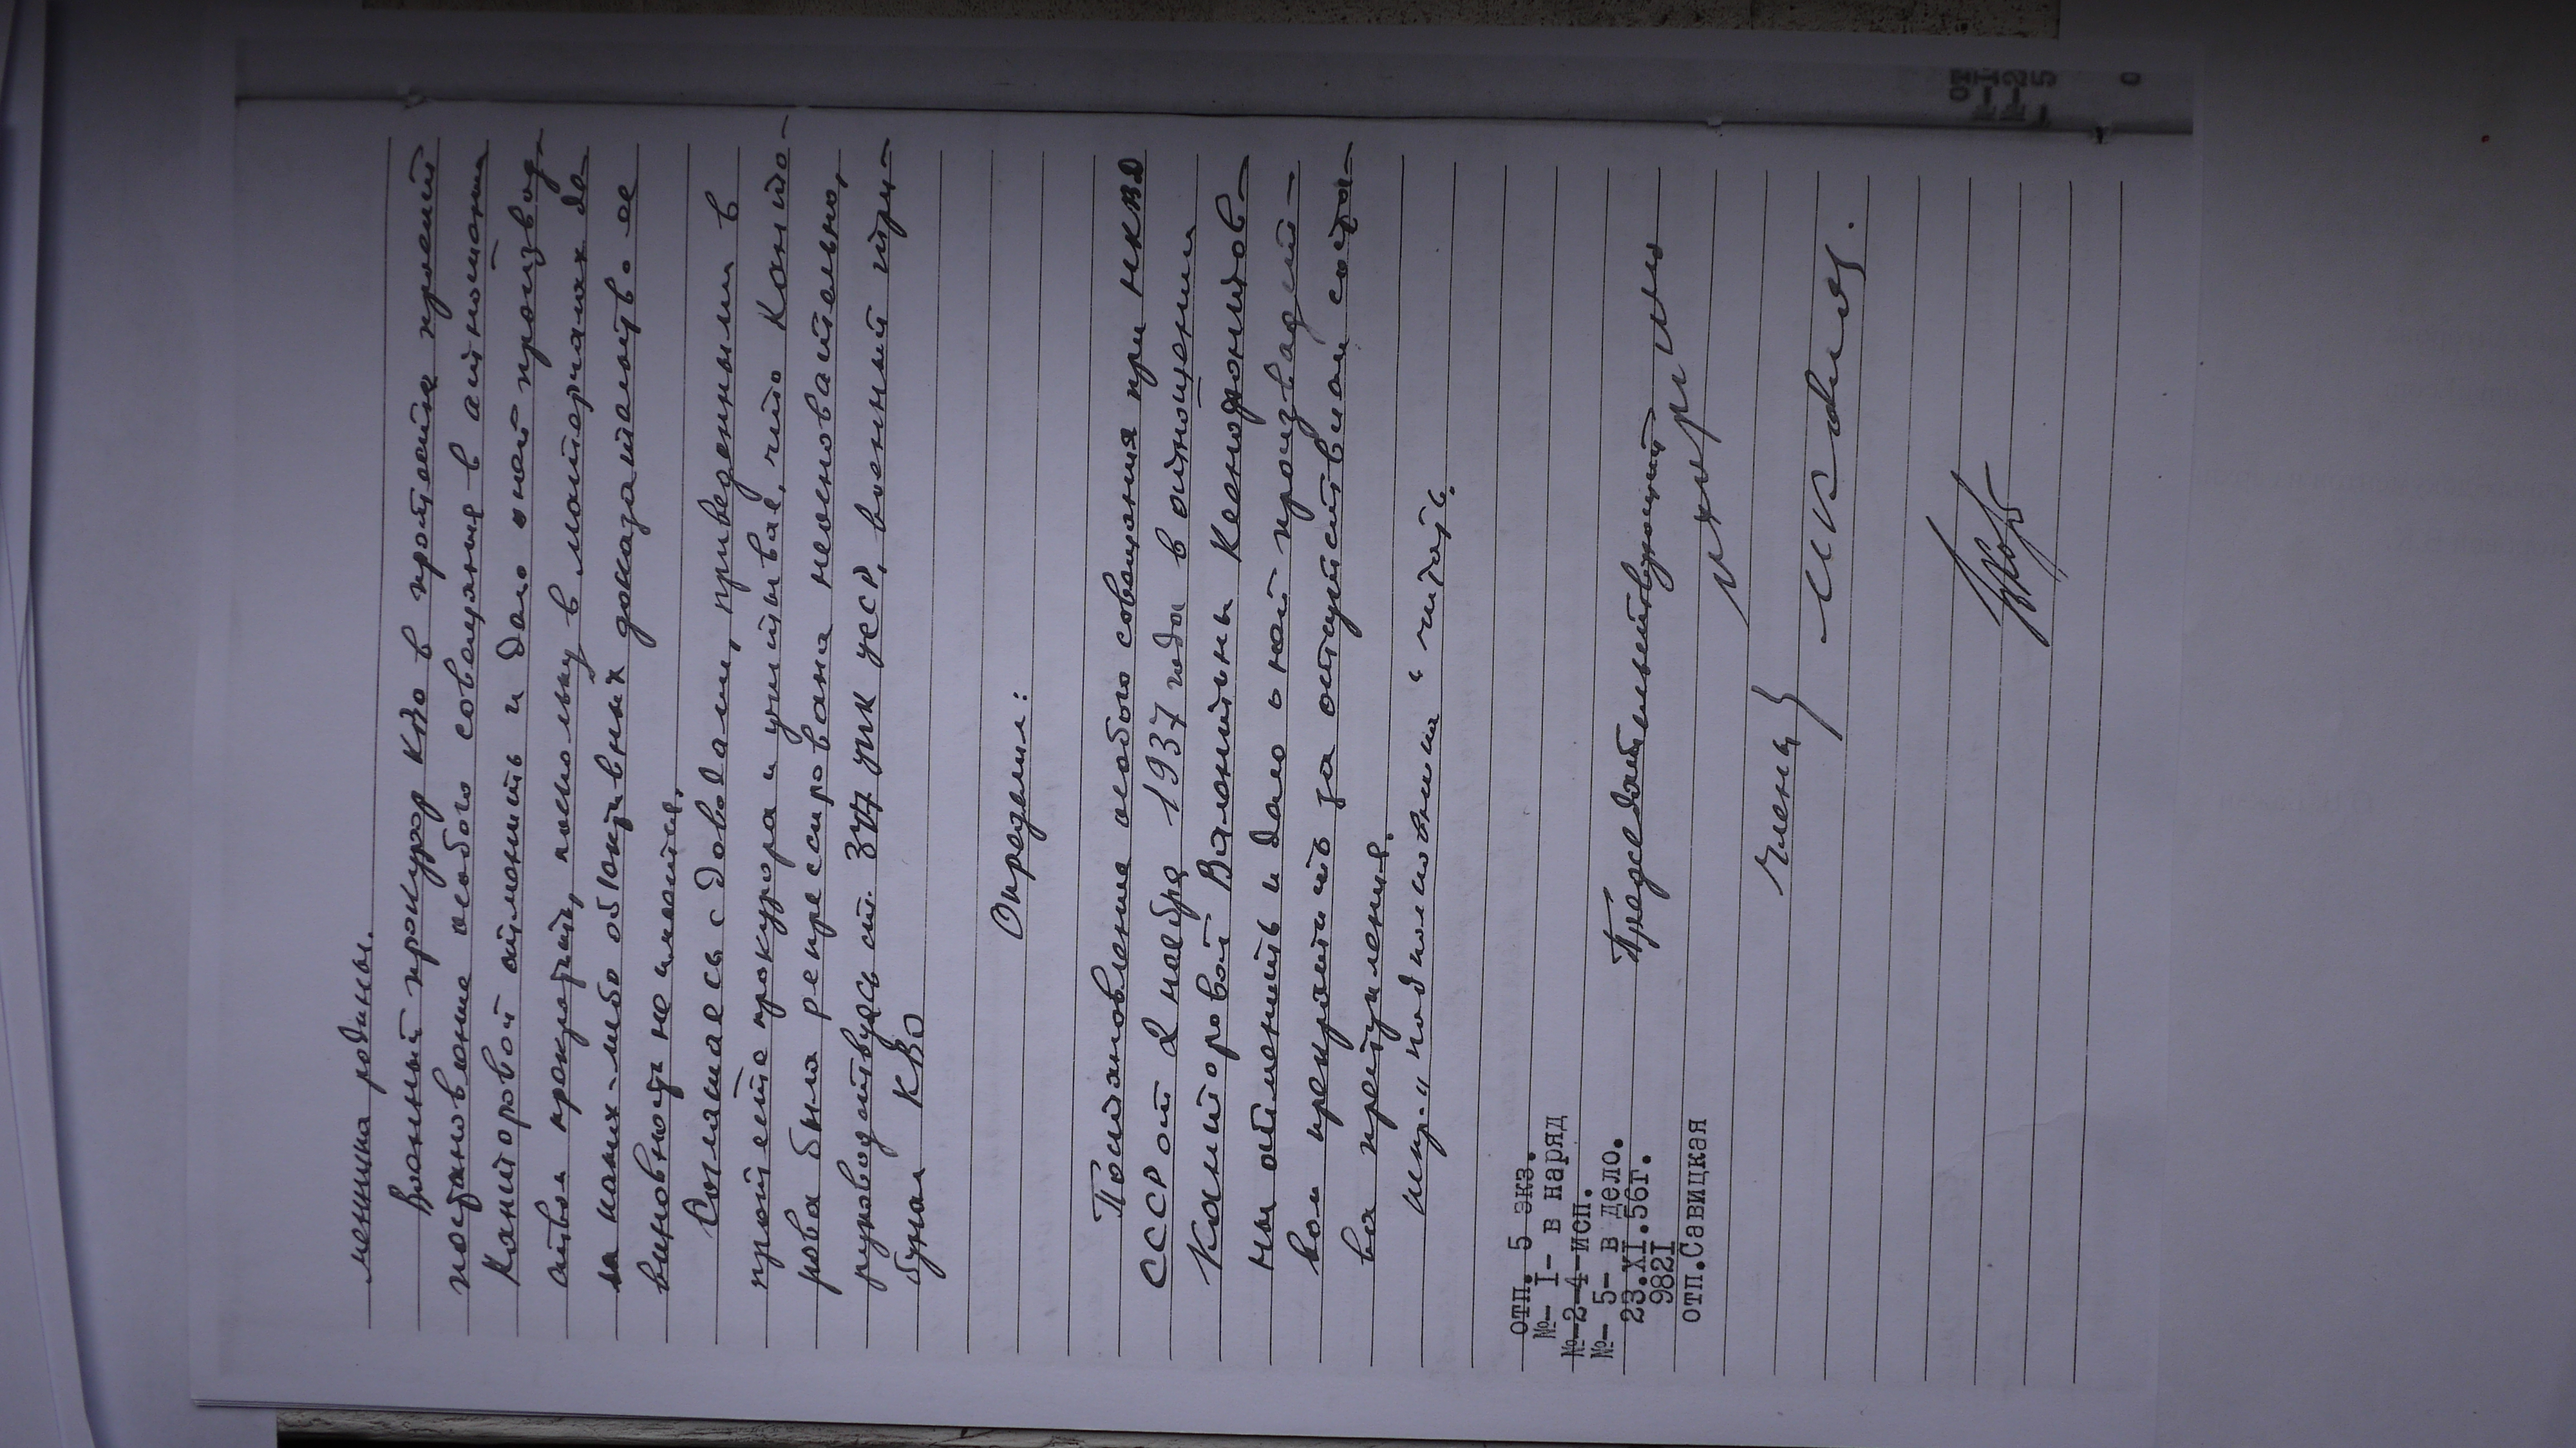 менника родины.
Военный прокурор КВО в протесте просит
постановление особого совещания в отношении
Канторовой отменить и дело о ней производ-
ством прекратить, поскольку в материалах де-
ла каких-либо объективных доказательств ее
виновности не имеется.
Соглашаясь с доводами, приведенными в
протесте прокурора и учитывая, что Канто-
рова была репрессирована неосновательно,
руководствуясь ст. 347 УПК УССР, военный три-
бунал КВО
Определил:
Постановление особого совещания при НКВД
СССР от 2 ноября 1937 года в отношении
Канторовой Валентины Ксенофонтов-
ны отменить и дело о ней производст-
вом прекратить за отсутствием соста-
ва преступления.
испр. "подполковника" читать.
Председательствующий
Члены
отп. 5 экз.
№- I- в наряд
№-2-4-исп.
№- 5- в дело.
23.XI.56г.
982I
отп.Савицкая